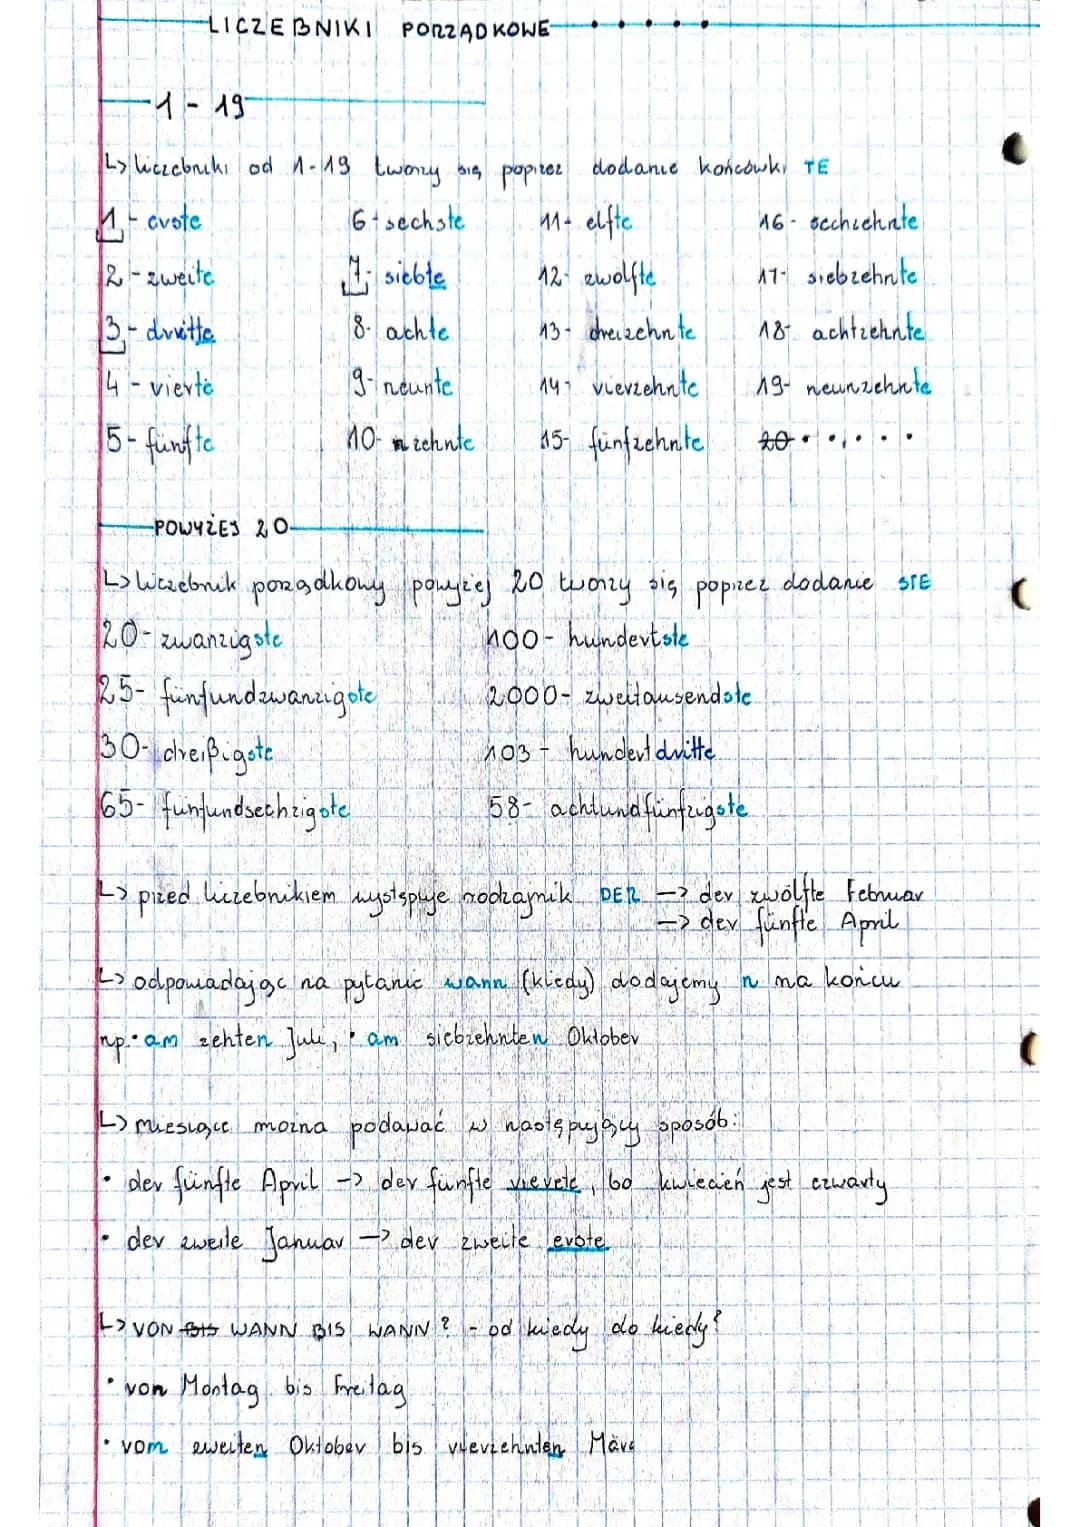 LICZEBNIKI PORZĄDKOWE
1 - 19
↳ liczebniki od 1-19 tworzy się poprzez dodanie końcówki TE
1 - erste 6 - sechste 11 - elfte 16 - sechzehnte
2 - zweite 7 - siebte 12 - zwölfte 17 - siebzehnte
3 - dritte 8 - achte 13 - dreizehnte 18 - achtzehnte
4 - vierte 9 - neunte 14 - vierzehnte 19 - neunzehnte
5 - fünfte 10 - zehnte 15 - fünfzehnte 20
POWYŻEJ 20
↳ liczebnik porządkowy powyżej 20 tworzy się poprzez dodanie STE
20 - zwanzigste 100 - hundertste
25 - fünfundzwanzigste 2000 - zweitausendste
30 - dreißigste 103 - hundertdritte
65 - fünfundsechzigste 58 - achtundfünfzigste
↳ przed liczebnikiem występuje rodzajnik DER → der zwölfte Februar
→ der fünfte April
↳ odpowiadając na pytanie wann (kiedy) dodajemy n na końcu
np. • am zehten Juli, • am siebzehnten Oktober
↳ miesiące można podawać w następujący sposób:
• der fünfte April → der fünfte vierte, bo kwiecień jest czwarty
• der zweite Januar → der zweite erste
↳ VON BIS WANN BIS WANN? - od kiedy do kiedy?
• von Montag bis Freitag
• vom zweiten Oktober bis vierzehnten März